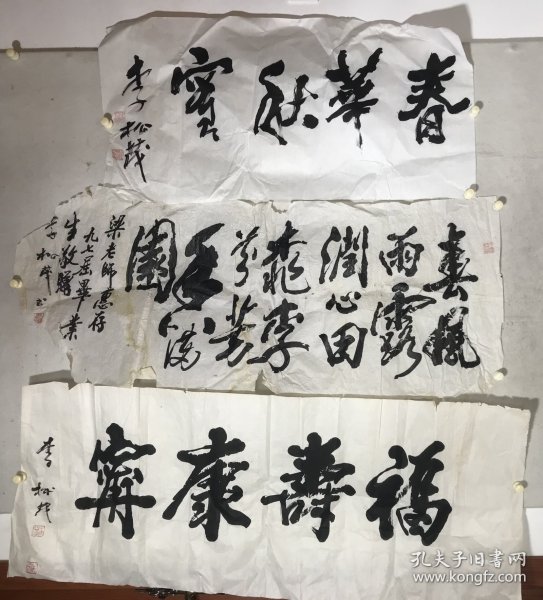 春華秋實
李松茂
春風
雨露
潤心田
桃李
芬芳
香滿
園
梁老師惠存
九七屆畢業
生敬贈
李松 书
福壽康寧
李
孔夫子旧书网
www.kongfz.com